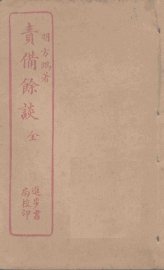 明方鵬著
責備餘談 全
進步書
局校印